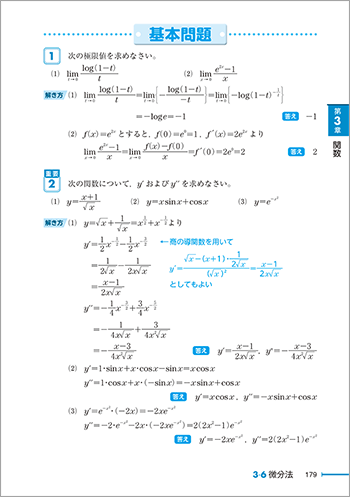 基本問題
1 次の極限値を求めなさい。
(1) lim_{t→0} log(1−t)/t (2) lim_{x→0} (e^{2x}−1)/x
解き方 (1) lim_{t→0} log(1−t)/t = lim_{t→0}[−log(1−t)/(−t)] = lim_{t→0}[−log(1−t)^{−1/t}]
=−log e=−1 答え −1
(2) f(x)=e^{2x} とすると，f(0)=e^0=1，f′(x)=2e^{2x} より
lim_{x→0} (e^{2x}−1)/x = lim_{x→0} (f(x)−f(0))/x = f′(0)=2e^0=2 答え 2
第3章 関数
重要
2 次の関数について，y′ および y″ を求めなさい。
(1) y=(x+1)/√x (2) y=x sin x+cos x (3) y=e^{−x²}
解き方 (1) y=√x+1/√x=x^{1/2}+x^{−1/2} より
y′=1/2 x^{−1/2}−1/2 x^{−3/2} ←商の導関数を用いて
=1/(2√x)−1/(2x√x) y′=(√x−(x+1)・1/(2√x))/(√x)²=(x−1)/(2x√x)
=(x−1)/(2x√x) としてもよい
y″=−1/4 x^{−3/2}+3/4 x^{−5/2}
=−1/(4x√x)+3/(4x²√x)
=−(x−3)/(4x²√x) 答え y′=(x−1)/(2x√x)，y″=−(x−3)/(4x²√x)
(2) y′=1・sin x+x・cos x−sin x=x cos x
y″=1・cos x+x・(−sin x)=−x sin x+cos x
答え y′=x cos x，y″=−x sin x+cos x
(3) y′=e^{−x²}・(−2x)=−2xe^{−x²}
y″=−2・e^{−x²}−2x・(−2xe^{−x²})=2(2x²−1)e^{−x²}
答え y′=−2xe^{−x²}，y″=2(2x²−1)e^{−x²}
3-6 微分法 179